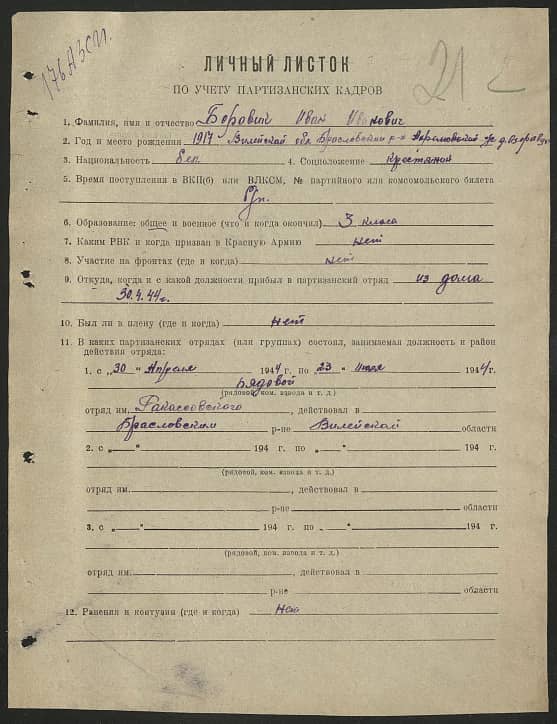 176 АЗСП.
21
ЛИЧНЫЙ ЛИСТОК
ПО УЧЕТУ ПАРТИЗАНСКИХ КАДРОВ
1. Фамилия, имя и отчество Боровик Иван Иванович
2. Год и место рождения 1917 Вилейской обл. Брасловский р-н
3. Национальность бел. 4. Соцположение крестьянин
5. Время поступления в ВКП(б) или ВЛКСМ, № партийного или комсомольского билета
б/п.
6. Образование: общее и военное (что и когда окончил) 3 класа
7. Каким РВК и когда призван в Красную Армию нет
8. Участие на фронтах (где и когда) нет
9. Откуда, когда и с какой должности прибыл в партизанский отряд из дома
30.4.44г.
10. Был ли в плену (где и когда) нет
11. В каких партизанских отрядах (или группах) состоял, занимаемая должность и район
действия отряда:
1. с „30" Апреля 1944 г. по „23" Июля 1944 г.
рядовой
(рядовой, ком. взвода и т. д.)
отряд им. Рокоссовского, действовал в
Брасловским р-не Вилейской области
2. с „ " 194 г. по „ " 194 г.
(рядовой, ком. взвода и т. д.)
отряд им. , действовал в
р-не области
3. с „ " 194 г. по „ " 194 г.
(рядовой, ком. взвода и т. д.)
отряд им. , действовал в
р-не области
12. Ранения и контузии (где и когда) нет